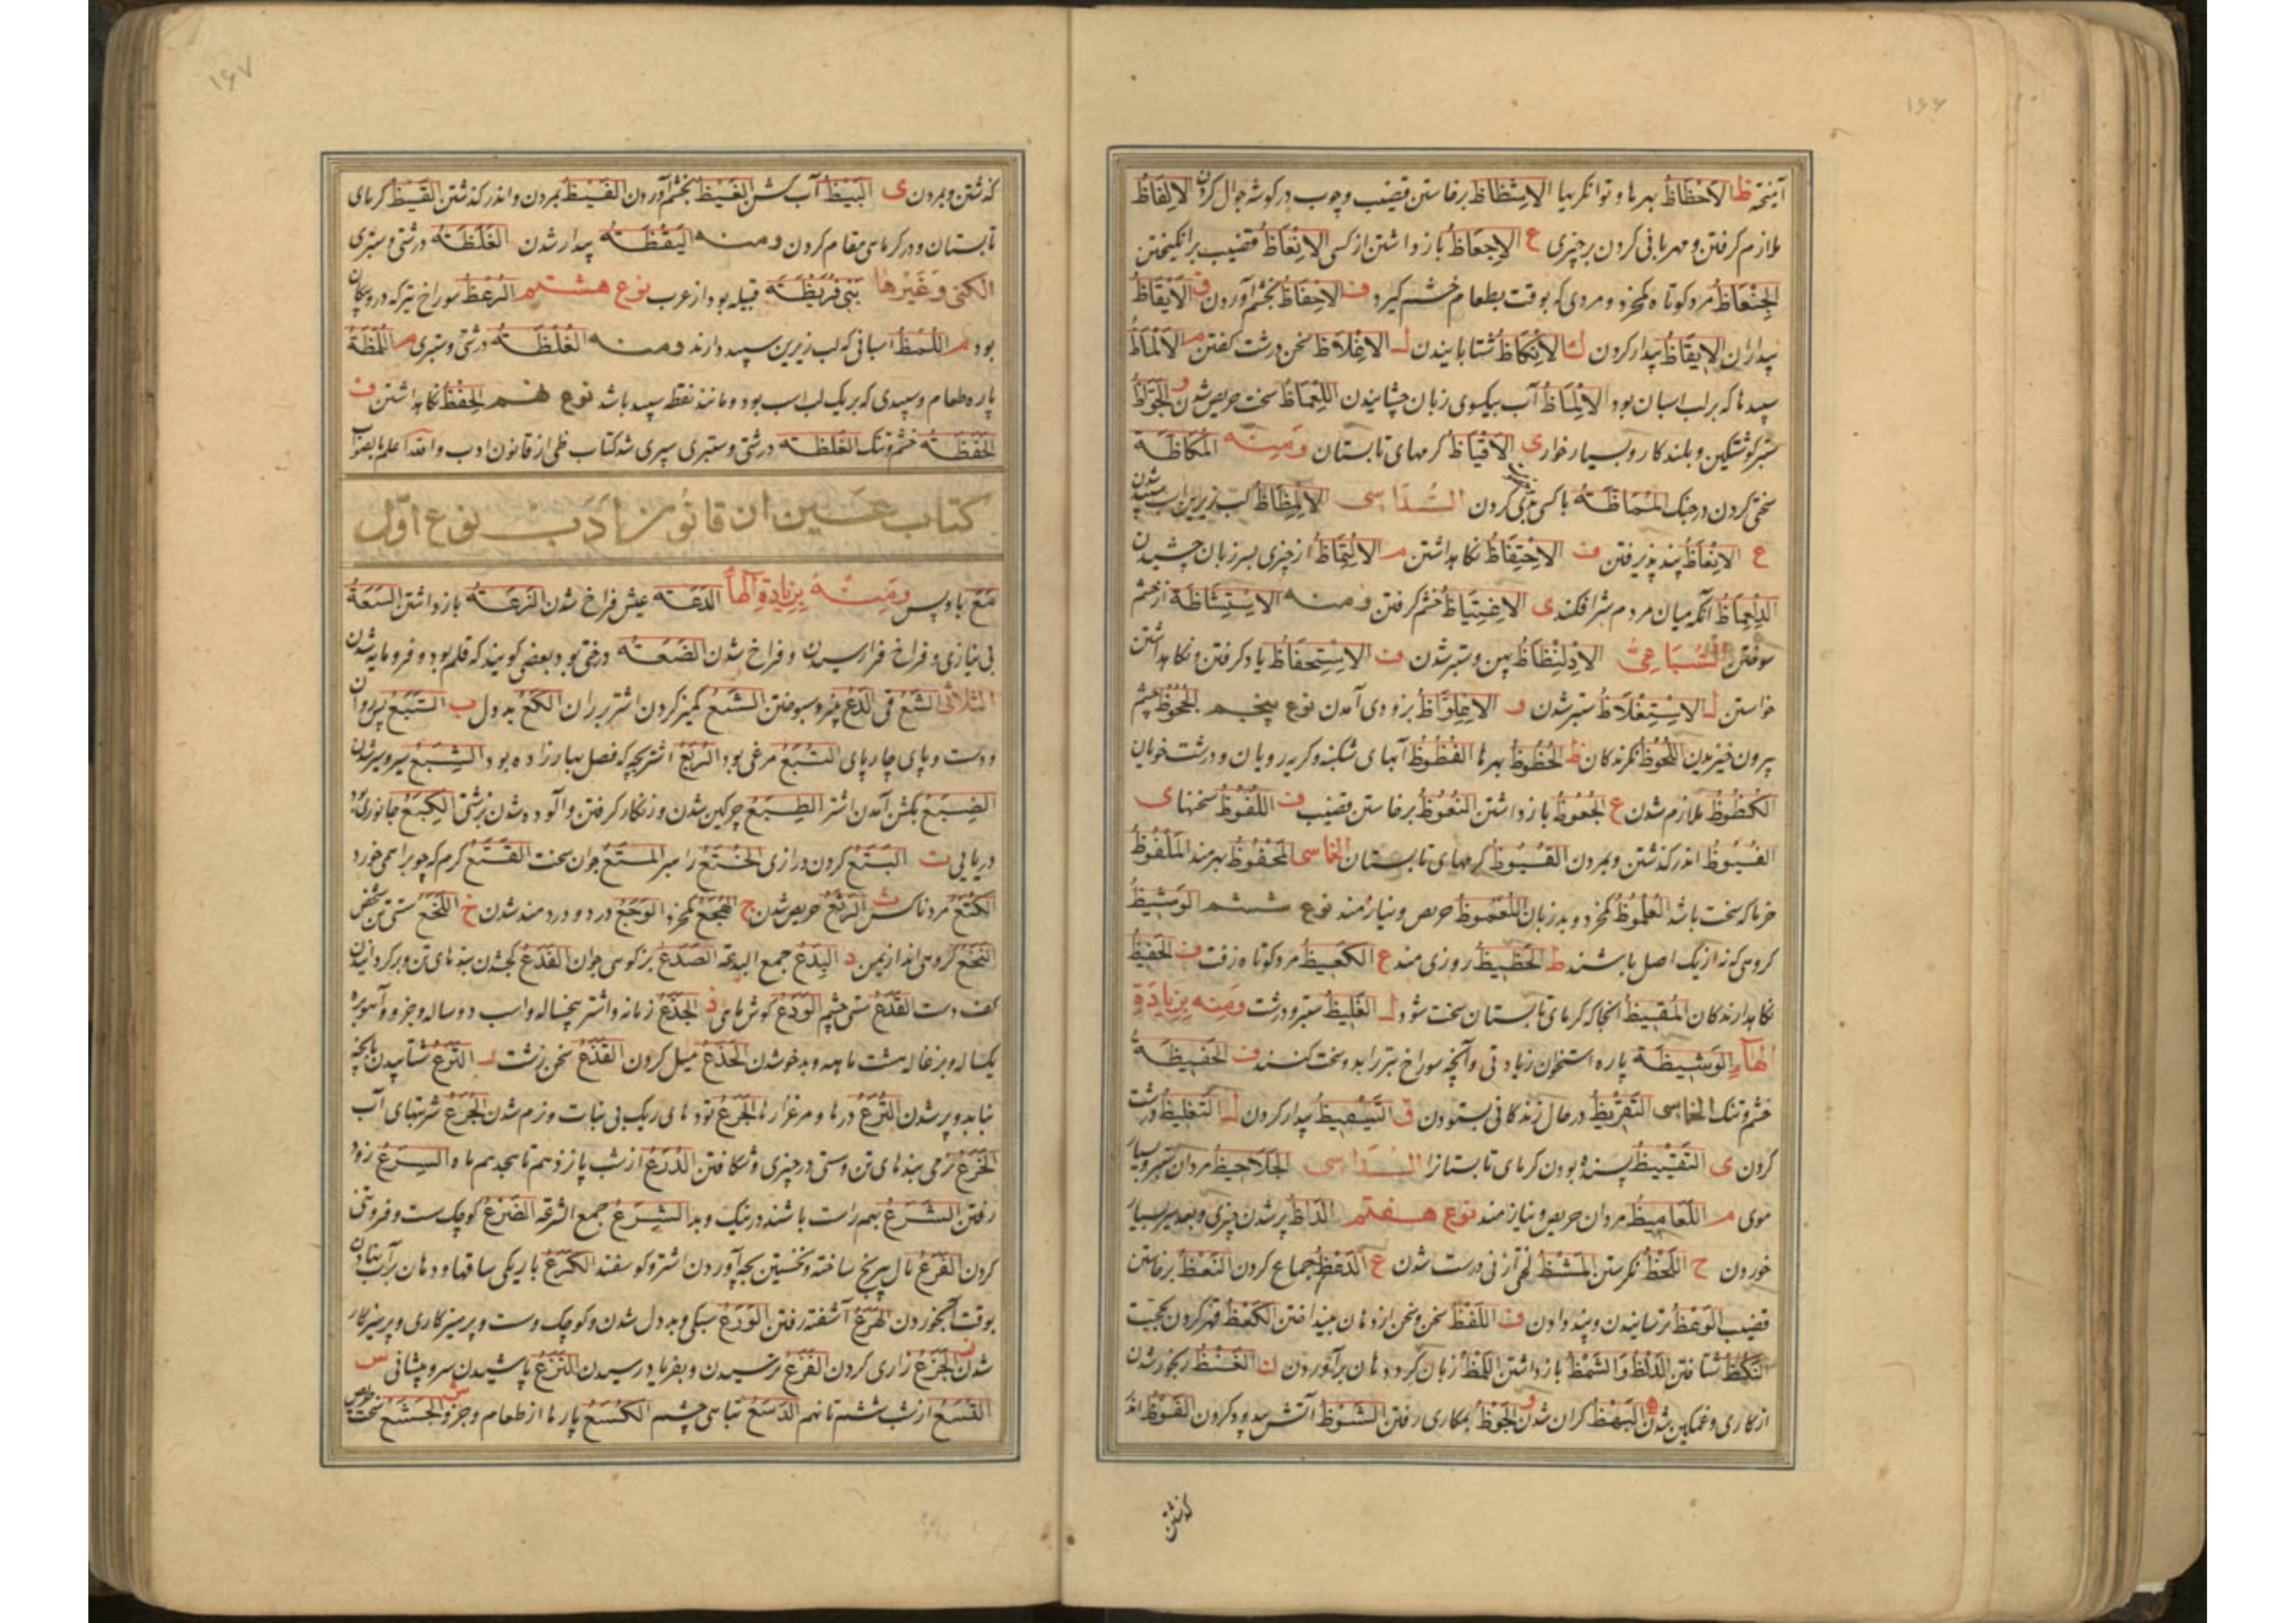 ۱۶۶
آمیخته ظ الاحظاظ بهرها و توانگریها الاشظاظ برخاستن قضیب و چوب در گوشه جوال کردن الالفاظ
ملازم گرفتن و مهربانی کردن بر چیزی ع الاجعاظ بازداشتن از کسی الانعاظ قضیب برانگیختن
الجنعاظ مرد کوتاه و مردی که بوقت طعام خشم گیرد ف الاحفاظ بخشم آوردن ق الایقاظ
بیداران الایقاظ بیدار کردن ك الانكاظ شتابانیدن ل الاغلاظ سخن درشت گفتن م الالماظ
سپیدها که بر لب اسبان بود الالماظ آب بیکسوی زبان چشانیدن اللعماظ سخت حریص شدن و الجواظ
ستبر و بلند کار و بسیار خوار ی الاقیاظ گرمهای تابستان ومنه المكاظة
سختی کردن در جنگ المماظة با کسی بدی کردن السداسی الالمظاظ لب زیرین اسب سپید شدن
ع الاتعاظ پند پذیرفتن ف الاحتفاظ نگاه داشتن م الالتماظ از چیزی بسر زبان چشیدن
آنکه میان مردم شر افکند ی الاغتیاظ خشم گرفتن ومنه الاستشاظة از خشم
سوختن السباعی الادلنظاظ پهن و ستبر شدن ف الاستحفاظ یاد گرفتن و نگاه داشتن
خواستن ل الاستغلاظ ستبر شدن و الاجلواظ بزودی آمدن نوع پنجم الجحوظ چشم
بیرون خیزیدن اللحوظ نگرندگان ظ الحظوظ بهرها الفظوظ آبهای شکنبه و کریه رویان و درشت خویان
الكظوظ ملازم شدن ع الجعوظ بازداشتن النعوظ برخاستن قضیب ف اللفوظ سخنها ی
الفیوظ اندر گذشتن و بمردن القیوظ گرمهای تابستان الخماسی المحفوظ بهرمند الملفوظ
خرما که سخت باشد و بد زبان اللعموظ حریص و نیازمند نوع ششم الوشیظ
گروهی که نه از یک اصل باشند ظ الحظیظ روزی مند ع الكعیظ مرد کوتاه زفت ف الحفیظ
نگاهدارندگان المقیظ آنجا که گرمای تابستان سخت شود ل الغلیظ ستبر و درشت ومنه بزیادة
الهاء الوشیظة پاره استخوان زیادتی و آنچه سوراخ تبر را بدو سخت کنند ف الحفیظة
خشم و ننگ الخماسی التقریظ در حال زندگانی بستودن ق التیقیظ بیدار کردن ل التغلیظ درشت
کردن ی التقییظ بسنده بودن گرمای تابستان را السداسی مردان ستبر و بسیار
موی م اللعامیظ مردان حریص و نیازمند نوع هفتم الداظ پر شدن چیزی و بعد سیر بسیار
خوردن ح اللحظ نگرستن المشظ درست شدن ع الدعظ جماع کردن النعظ برخاستن
قضیب الوعظ ترسانیدن و پند دادن ف اللفظ سخن و سخن از دهان بینداختن العكظ قهر کردن بحجت
النكظ شتافتن الدلظ و الشمظ بازداشتن اللمظ زبان گرد دهان برآوردن ن الغنظ رنجور شدن
از کاری و غمگین شدن ه البهظ گران شدن و الجوظ بمکاری رفتن الشوظ آتش بی دود کردن الفوظ اندر
گذشتن
۱۶۷
گذشتن و بمردن ی البیظ آب گشن الغیظ بخشم آوردن الفیظ بمردن و اندر گذشتن القیظ گرمای
تابستان و در گرما سی مقام کردن ومنه الیقظة بیدار شدن الغلظة درشتی و ستبری
الكنی وغیرها بنی قریظة قبیله بود از عرب نوع هشتم الرعظ سوراخ تیر که درو پیکان
بود م اللمظ اسبانی که لب زیرین سپید دارند ومنه الغلظة درشتی و ستبری م اللمظة
پاره طعام و سپیدی که بر یک لب اسب بود و مانند نقطه سپید باشد نوع نهم الحفظ نگاه داشتن ف
الحفظة خشم و ننگ الغلظة درشتی و ستبری سپری شد کتاب ظی از قانون ادب والله اعلم بالصواب
کتاب عین از قانون ادب نوع اول
مع با و پس ومنه بزیادة الهاء الدعة عیش فراخ شدن الزعة بازداشتن السعة
بی نیازی و فراخ فرا رسیدن و فراخ شدن الضعة درختی بود بعضی گویند که قلم بود و فرومایه شدن
الثلاثی الشع قی الدع سپوختن الشع کمیز کردن اشتر بر ران الكع بد دل ب التبع پیروان
و دست و پای چارپای التبع مرغی بود الربع اشتر بچه که فصل بهار زاده بود الشبع سیر و سیر شدن
الضبع بگشن آمدن اشتر الطبع چرکین شدن و زنگار گرفتن و آلوده شدن بزشتی الكبع جانوری بود
دریایی ت البتع گردن درازی الختع راهبر المتع جوان سخت القتع کرم که چوبرا همی خورد
الكتع مرد ناکس ث الرثع حریص شدن ج الهجع الوجع درد و دردمند شدن خ اللخع سستی تن شخص
النخع گروهی اند از یمن د البدع جمع البدعة الصدع بز کوهی جوان الفدع کج شدن بندهای تن و برگردانیدن
کف دست القدع سستی چشم الودع گوش ماهی ذ الجذع زمانه و اشتر پنجساله و اسب دو ساله و خر و آهو بره
یکساله و بزغاله هشت ماهه و بدخو شدن میل کردن القذع سخن زشت ر الترع شتابیدن بآنچه
نباید و پر شدن الترع درها و مرغزارها الجرع تودهای ریگ بی نبات و نرم شدن الجرع شربتهای آب
الخرع نرمی بندهای تن و سستی در چیزی و شکافتن الدرع از شب پانزدهم تا هجدهم ماه السرع زود
رفتن الشرع بهم راست باشند در نیک و بد الشرع جمع الشرعة الضرع کوچک است و فروتنی
کردن الفرع مال بربح ساخته و نخستین بچه آوردن اشتر و گوسفند الكرع باریکی ساقها و دهان بر آب نهادن
بوقت آبخوردن الهرع آشفته رفتن الورع سبکی و بد دل شدن و کوچک و سست و پرهیزکاری و پرهیزکار
شدن ز الجزع زاری کردن الفزع ترسیدن و بفریاد رسیدن النزع پاشیدن سر و پیشانی س
التسع از شب ششم تا نهم الدسع تباهی چشم الكسع پارها از طعام و جز و ش الجشع سخت حریص